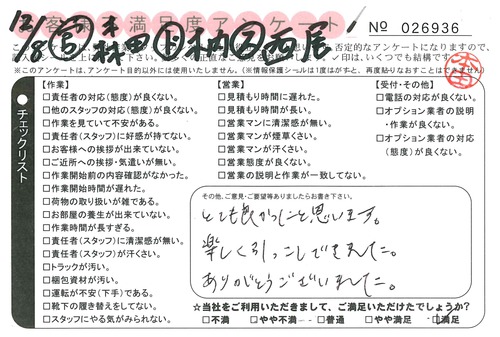 お客さま満足度アンケート
№ 026936
【作業】
□責任者の対応(態度)が良くない。
□他のスタッフの対応(態度)が良くない。
□作業を見ていて不安がある。
□責任者(スタッフ)に好感が持てない。
□お客様への挨拶が出来ていない。
□ご近所への挨拶・気遣いが無い。
□作業開始前の内容確認がなかった。
□作業開始時間が遅れた。
□荷物の取り扱いが雑である。
□お部屋の養生が出来ていない。
□作業時間が長すぎる。
□責任者(スタッフ)に清潔感が無い。
□責任者(スタッフ)が汗くさい。
□トラックが汚い。
□梱包資材が汚い。
□運転が不安(下手)である。
□靴下の履き替えをしてない。
□スタッフにやる気がみられない。
【営業】
□見積もり時間に遅れた。
□見積もり時間が長い。
□営業マンに清潔感が無い。
□営業マンが煙草くさい。
□営業マンが汗くさい。
□営業態度が良くない。
□営業の説明と作業が一致してない。
【受付・その他】
□電話の対応が良くない。
□オプション業者の説明
・作業が良くない。
□オプション業者の対応
(態度)が良くない。
●チェックリスト
その他、ご意見・ご要望等ありましたらお書き下さい。
とても良かったと思います。
楽しく引っこしできました。
ありがとうございました。
☆当社をご利用いただきまして、ご満足いただけたでしょうか?
□不満 □やや不満 □普通 □やや満足 □満足